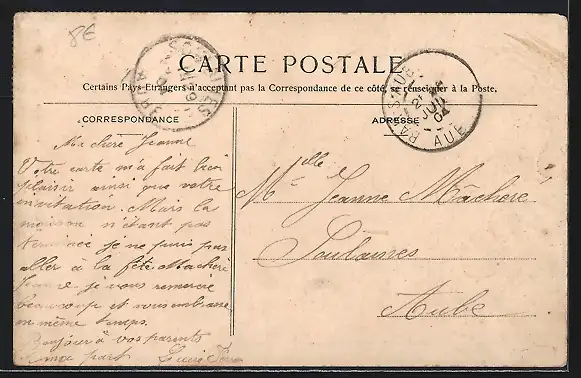 8€
CARTE POSTALE
Certains Pays Etrangers n'acceptant pas la Correspondance de ce côté, se renseigner à la Poste.
CORRESPONDANCE
ADRESSE
Ma chère Jeanne
Votre carte m'a fait bien
plaisir ainsi que votre
invitation. Mais la
moisson n'étant pas
terminée je ne puis pas
aller à la fête. Ma chère
Jeanne je vous remercie
beaucoup et vous embrasse
en même temps.
Bonjour à vos parents
ma part
Melle Jeanne Mâcheré
Soulaines
Aube
SOULAINES
BAR-S-AUBE
AUBE